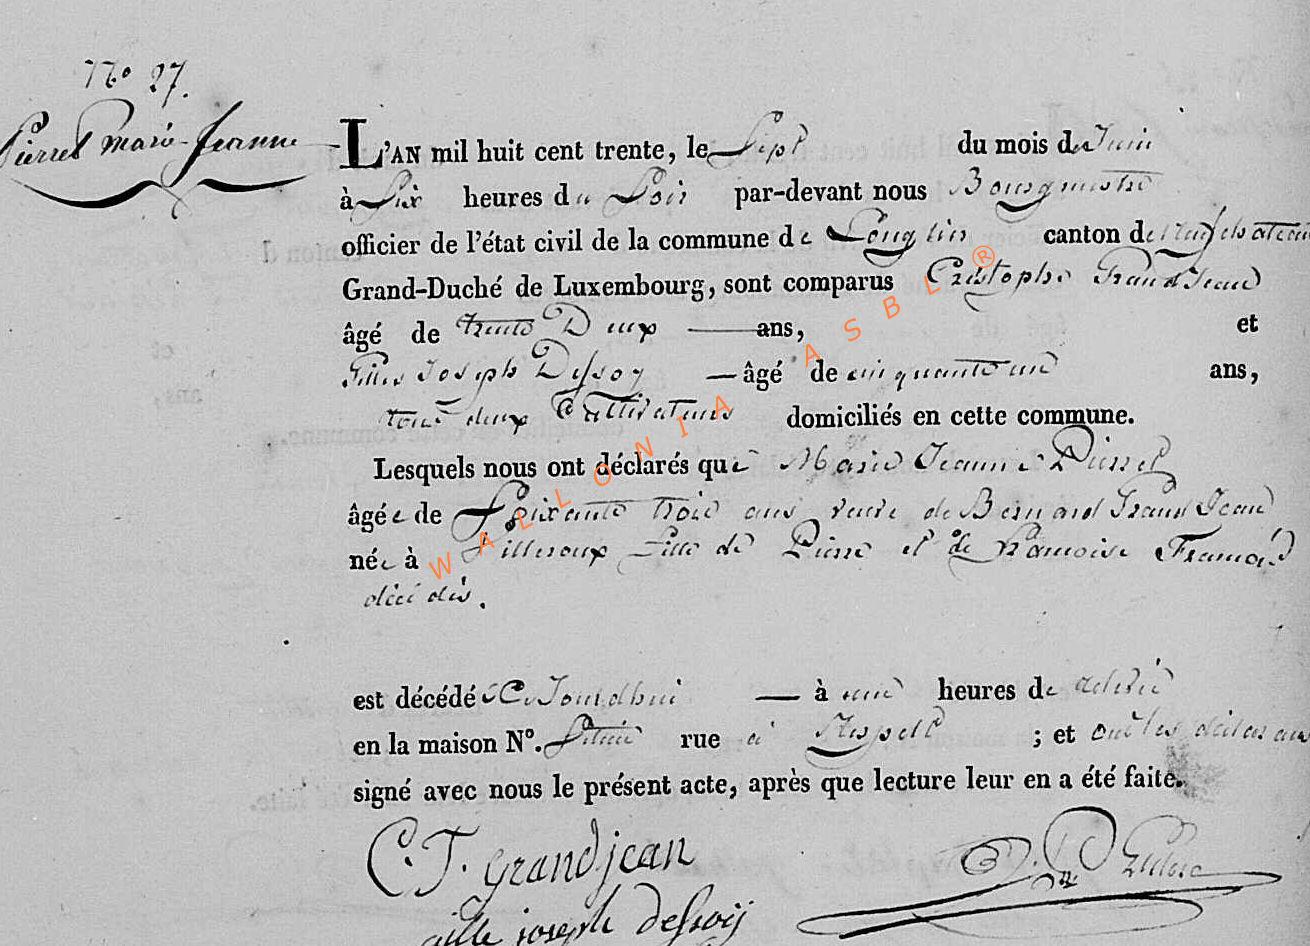 No 27.
Pierret marie-Jeanne
L'AN mil huit cent trente, le Sept du mois de Juin
à Six heures du Soir par-devant nous Bourgmestre
officier de l'état civil de la commune de Longlier canton de Neufchateau
Grand-Duché de Luxembourg, sont comparus Cristophe Grand Jean
âgé de trente Deux ans, et
Gilles Joseph Dessoy âgé de cinquante un ans,
tous deux Cultivateurs domiciliés en cette commune.
Lesquels nous ont déclarés que Marie Jeanne Pierret
âgée de Soixante trois ans veuve de Bernard Grand Jean
née à fille de Pierre et de Francoise Francois
décédés.
est décédée aujourdhui à une heures de
en la maison No. Située rue à Respelt ; et ont les déclarans
signé avec nous le présent acte, après que lecture leur en a été faite.
C. J. grandjean
gille joseph dessoij
WALLONIA ASBL ®